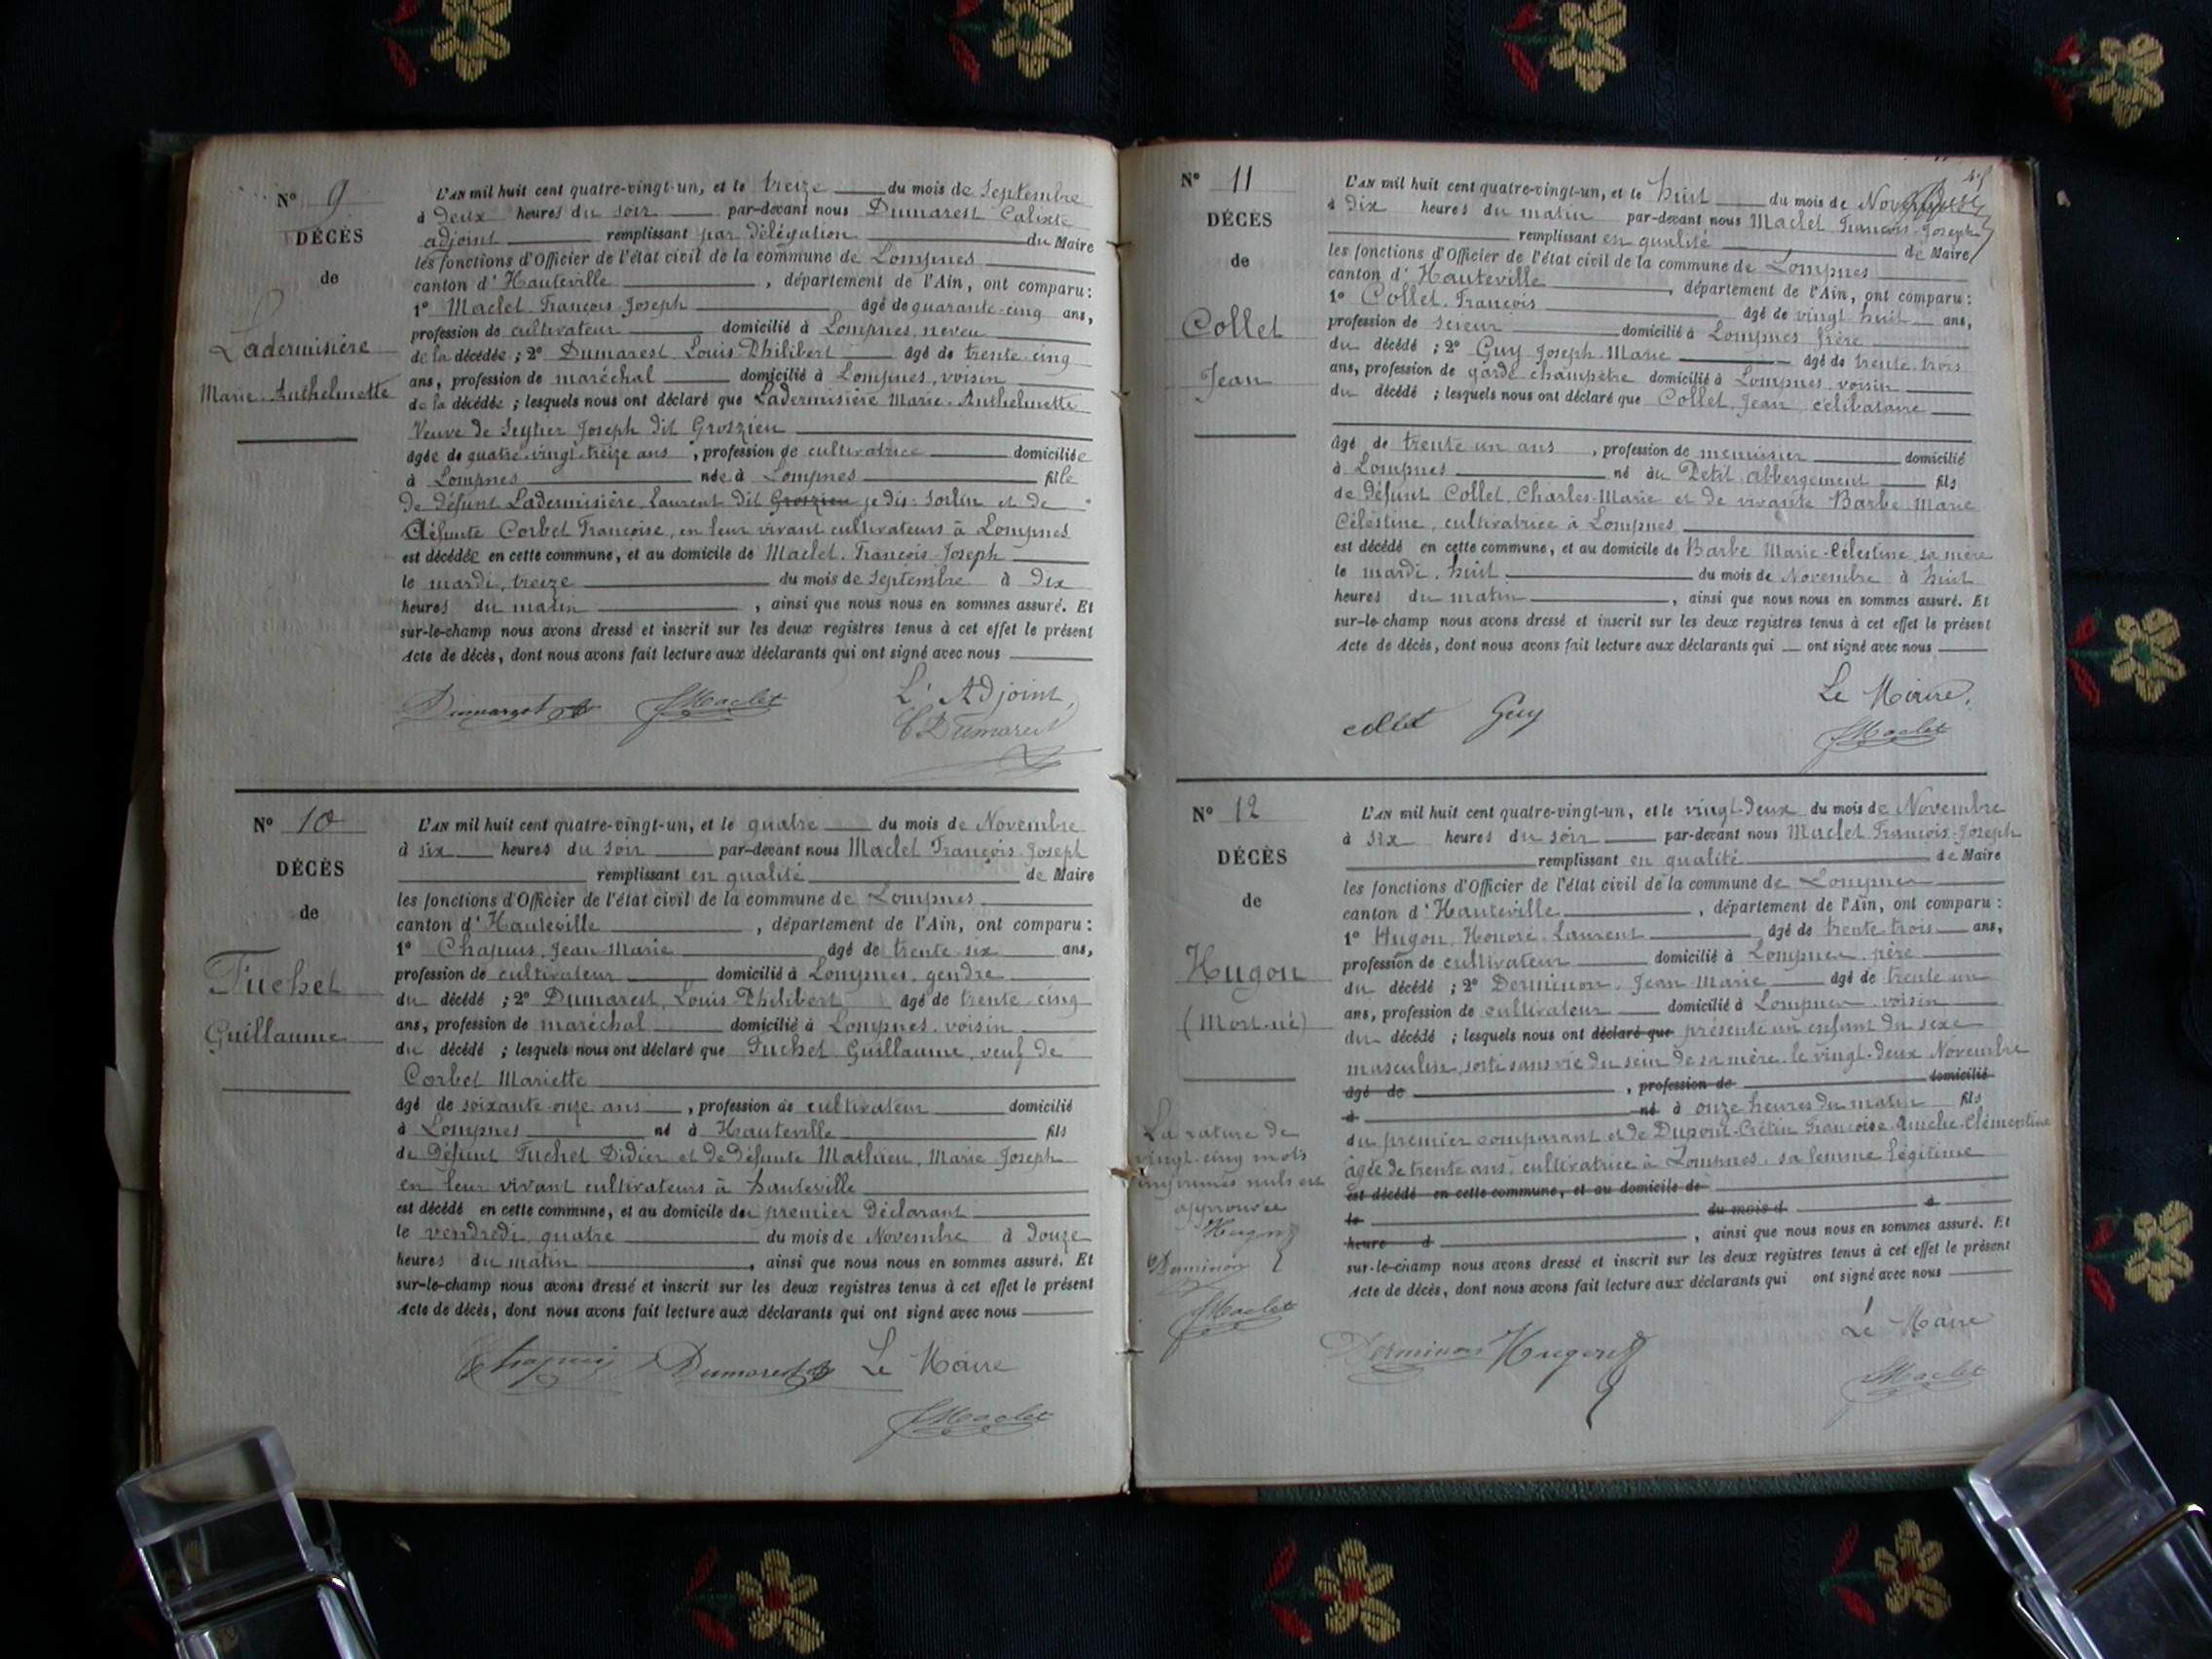 N° 9
DÉCÈS
de
Ladermisière
Marie-Anthelmette
L'AN mil huit cent quatre-vingt-un, et le treize du mois de Septembre
à deux heures du soir par-devant nous Dumarest Calixte
adjoint remplissant par délégation du Maire
les fonctions d'Officier de l'état civil de la commune de Lompnes
canton d'Hauteville, département de l'Ain, ont comparu:
1° Maclet François-Joseph âgé de quarante-cinq ans,
profession de cultivateur domicilié à Lompnes, neveu
de la décédée; 2° Dumarest Louis-Philibert âgé de trente-cinq
ans, profession de maréchal domicilié à Lompnes, voisin
de la décédée; lesquels nous ont déclaré que Ladermisière Marie-Anthelmette
Veuve de Seytier Joseph dit Groszieu
âgée de quatre-vingt-treize ans, profession de cultivatrice domiciliée
à Lompnes née à Lompnes fille
de défunt Ladermisière, Laurent dit Groszieu je dis: Sorlin et de
défunte Corbet Françoise, en leur vivant cultivateurs à Lompnes
est décédée en cette commune, et au domicile de Maclet, François-Joseph
le mardi, treize du mois de Septembre à dix
heures du matin, ainsi que nous nous en sommes assuré. Et
sur-le-champ nous avons dressé et inscrit sur les deux registres tenus à cet effet le présent
Acte de décès, dont nous avons fait lecture aux déclarants qui ont signé avec nous
L'Adjoint,
Dumarest JMaclet
C Dumarest
N° 10
DÉCÈS
de
Fuchet
Guillaume
L'AN mil huit cent quatre-vingt-un, et le quatre du mois de Novembre
à six heures du soir par-devant nous Maclet François-Joseph
remplissant en qualité de Maire
les fonctions d'Officier de l'état civil de la commune de Lompnes
canton d'Hauteville, département de l'Ain, ont comparu:
1° Chapuis, Jean-Marie âgé de trente-six ans,
profession de cultivateur domicilié à Lompnes, gendre
du décédé; 2° Dumarest, Louis-Philibert âgé de trente-cinq
ans, profession de maréchal domicilié à Lompnes, voisin
du décédé; lesquels nous ont déclaré que Fuchet Guillaume, veuf de
Corbet Mariette
âgé de soixante-onze ans, profession de cultivateur domicilié
à Lompnes né à Hauteville fils
de défunt Fuchet Didier et de défunte Mathieu, Marie-Joseph
en leur vivant cultivateurs à hauteville
est décédé en cette commune, et au domicile du premier déclarant
le vendredi, quatre du mois de Novembre à douze
heures du matin, ainsi que nous nous en sommes assuré. Et
sur-le-champ nous avons dressé et inscrit sur les deux registres tenus à cet effet le présent
Acte de décès, dont nous avons fait lecture aux déclarants qui ont signé avec nous
Chapuis Dumarest Le Maire
JMaclet
N° 11
DÉCÈS
de
Collet
Jean
L'AN mil huit cent quatre-vingt-un, et le huit du mois de Novembre
à dix heures du matin par-devant nous Maclet François-Joseph
remplissant en qualité de Maire
les fonctions d'Officier de l'état civil de la commune de Lompnes
canton d'Hauteville, département de l'Ain, ont comparu:
1° Collet, François âgé de vingt-huit ans,
profession de scieur domicilié à Lompnes frère
du décédé; 2° Guy Joseph-Marie âgé de trente-trois
ans, profession de garde champêtre domicilié à Lompnes voisin
du décédé; lesquels nous ont déclaré que Collet, Jean, célibataire
âgé de trente-un ans, profession de menuisier domicilié
à Lompnes né au Petit-abbergement fils
de défunt Collet, Charles-Marie et de vivante Barbe Marie
Célestine, cultivatrice à Lompnes
est décédé en cette commune, et au domicile de Barbe Marie-Célestine, sa mère
le mardi, huit du mois de Novembre à huit
heures du matin, ainsi que nous nous en sommes assuré. Et
sur-le-champ nous avons dressé et inscrit sur les deux registres tenus à cet effet le présent
Acte de décès, dont nous avons fait lecture aux déclarants qui ont signé avec nous
Le Maire,
collet Guy
JMaclet
N° 12
DÉCÈS
de
Hugon
(Mort-né)
La rature de
vingt-cinq mots
imprimés nuls est
approuvée
Hugon
Derminon
JMaclet
L'AN mil huit cent quatre-vingt-un, et le vingt-deux du mois de Novembre
à six heures du soir par-devant nous Maclet François-Joseph
remplissant en qualité de Maire
les fonctions d'Officier de l'état civil de la commune de Lompnes
canton d'Hauteville, département de l'Ain, ont comparu:
1° Hugon, Honoré-Laurent âgé de trente-trois ans,
profession de cultivateur domicilié à Lompnes, père
du décédé; 2° Derminon, Jean Marie âgé de trente un
ans, profession de cultivateur domicilié à Lompnes, voisin
du décédé; lesquels nous ont déclaré que présenté un enfant du sexe
masculin, sorti sans vie du sein de sa mère, le vingt-deux Novembre
âgé de, profession de domicilié
à né à onze heures du matin fils
du premier comparant et de Dupont-Crétin Françoise Amélie-Clémentine
âgée de trente ans, cultivatrice à Lompnes, sa femme légitime
est décédé en cette commune, et au domicile de
le du mois d à
heure d, ainsi que nous nous en sommes assuré. Et
sur-le-champ nous avons dressé et inscrit sur les deux registres tenus à cet effet le présent
Acte de décès, dont nous avons fait lecture aux déclarants qui ont signé avec nous
Le Maire
Derminon Hugon
JMaclet